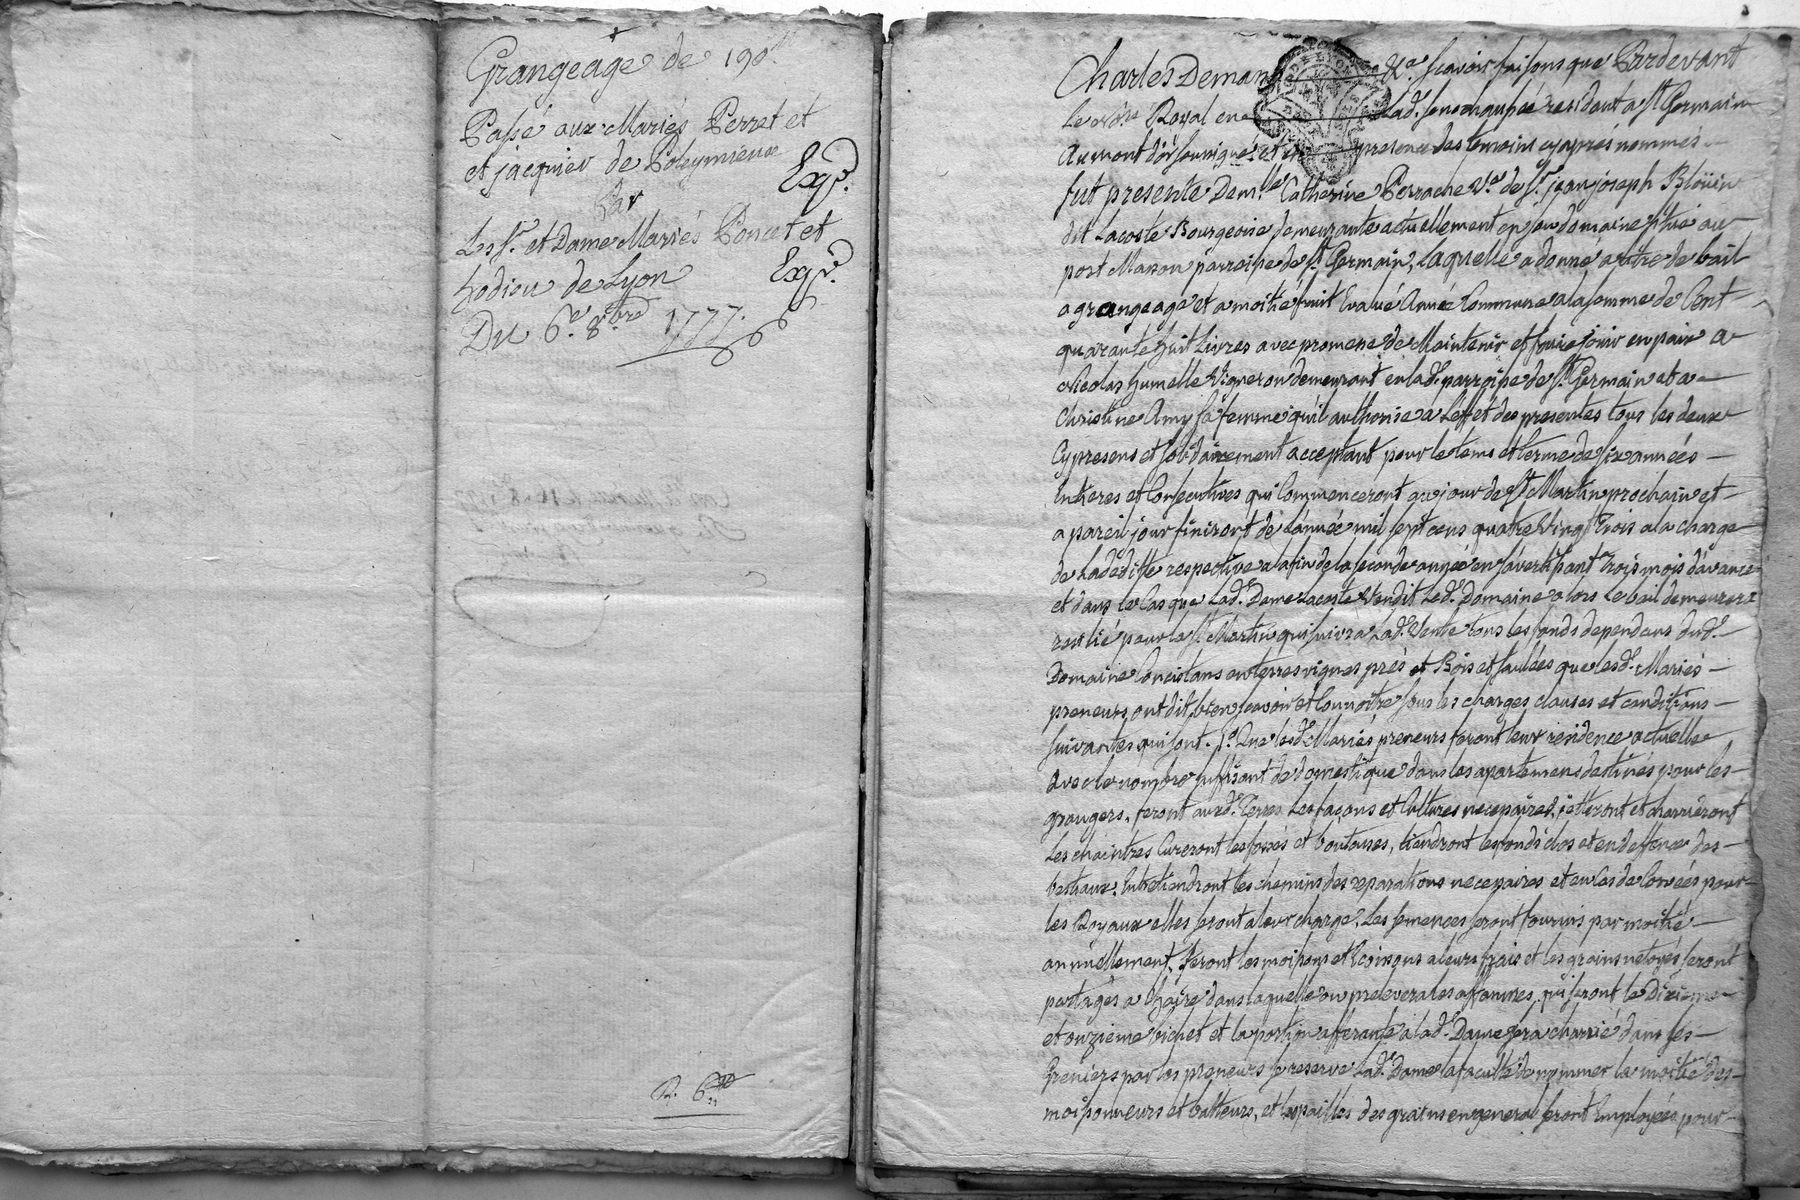 Grangeage de 190.ᵗᵗ
Passé aux Mariés Perret et
et jacquier de Poleymieux
Exp.ᵉ
Par
Les S.ʳ et Dame Mariés Poncet et
hodieu de Lyon
Exp.ᵉ
Du 6.ᵉ 8.ᵇʳᵉ 1777.
R. 6.ᵗᵗ
Charles Demang V.ᵃ scavoir faisons que Pardevant
Le No.ʳᵉ Royal en lad. senechaussée residant a S.ᵗ Germain
au mont d'or soussigné, et en presence des temoins cyaprés nommés
fut presente Dem.ˡˡᵉ Catherine Perrache V.ᵉ de S.ʳ jean joseph Bloüin
dit Lacoste Bourgeoise demeurante actuellement en son domaine situé au
port Mason parroisse de S.ᵗ Germain, laquelle a donné a titre de bail
a grangeage et a moitié fruit Evalué Année Commune a la somme de Cent
quarante huit Livres avec promesse de Maintenir et faire jouir en paix a
Nicolas humelle Vigneron demeurant en lad.ᵉ parroisse de S.ᵗ Germain et a
Christine Amy sa femme qu'il authorise a L'effet des presentes tous les deux
Cy presens et solidairement acceptant pour le tems et terme de six années
Entieres et Consecutives qui Commenceront au jour de S.ᵗ Martin prochain et
a pareil jour finiront de L'année mil sept cens quatre Vingt Trois a la charge
de La déditte respective a la fin de la seconde année en s'avertissant Trois mois d'avance
et dans le Cas que Lad.ᵉ Dame Lacoste Vendit Led.ᵗ Domaine alors Le bail demeurera
resilié pour la S.ᵗ Martin qui suivra Lad.ᵉ Vente tous les fonds dependans dud.ᵗ
Domaine Consistans en terres vignes prés et Bois et saulées que lesd.ᵗ Mariés
preneurs ont dit bien scavoir et Connoitre sous les charges clauses et conditions
suivantes qui sont. 1.º Que lesd.ᵗ Mariés preneurs feront leur residence actuelle
avec le nombre suffisant de domestique dans les apartemens destinés pour les
grangers, feront auxd. Terres Les façons et Cultures necessaires, jetteront et charrieront
Les chaintres Cureront les fossés et boutasses, tiendront les fonds clos et en deffence des
bestiaux. Entretiendront les chemins des reparations necessaires et en Cas de Corvées pour
les Royaux elles seront a leur charge, Les semences seront fournis par moitié
annuellement, Feront les moissons et Ecoissons a leurs frais et les grains netoyés seront
partagés a L'haire dans laquelle on prelevera les affanures, qui seront le Dixieme
et onzieme bichet et la portion afferante a lad.ᵉ Dame sera charrié dans ses
Greniers par les preneurs se reserve Lad.ᵉ Dame la faculté de nommer la moitié des
moissonneurs et batteurs, et les pailles des grains en general seront Employées pour